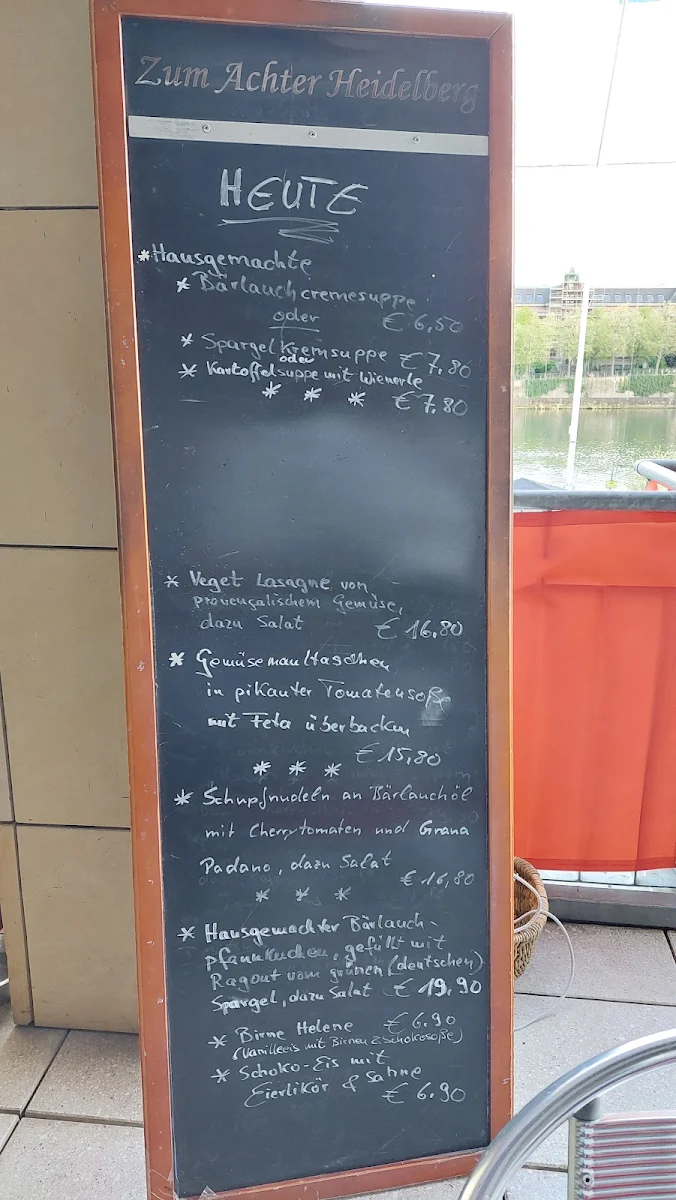 Zum Achter Heidelberg
HEUTE
* Hausgemachte
* Bärlauchcremesuppe
oder € 6,50
* Spargelkremsuppe € 7,80
oder
* Kartoffelsuppe mit Wienerle
* * * € 7,80
* Veget Lasagne von
provençalischem Gemüse,
dazu Salat € 16,80
* Gemüsemaultaschen
in pikanter Tomatensoße
mit Feta überbacken
€ 15,80
* * *
* Schupfnudeln an Bärlauchöl
mit Cherrytomaten und Grana
Padano, dazu Salat
€ 16,80
* * *
* Hausgemachter Bärlauch-
pfannkuchen, gefüllt mit
Ragout vom grünen (deutschen)
Spargel, dazu Salat € 19.90
* Birne Helene € 6.90
(Vanilleeis mit Birnen & Schokosoße)
* Schoko-Eis mit
Eierlikör & Sahne
€ 6.90